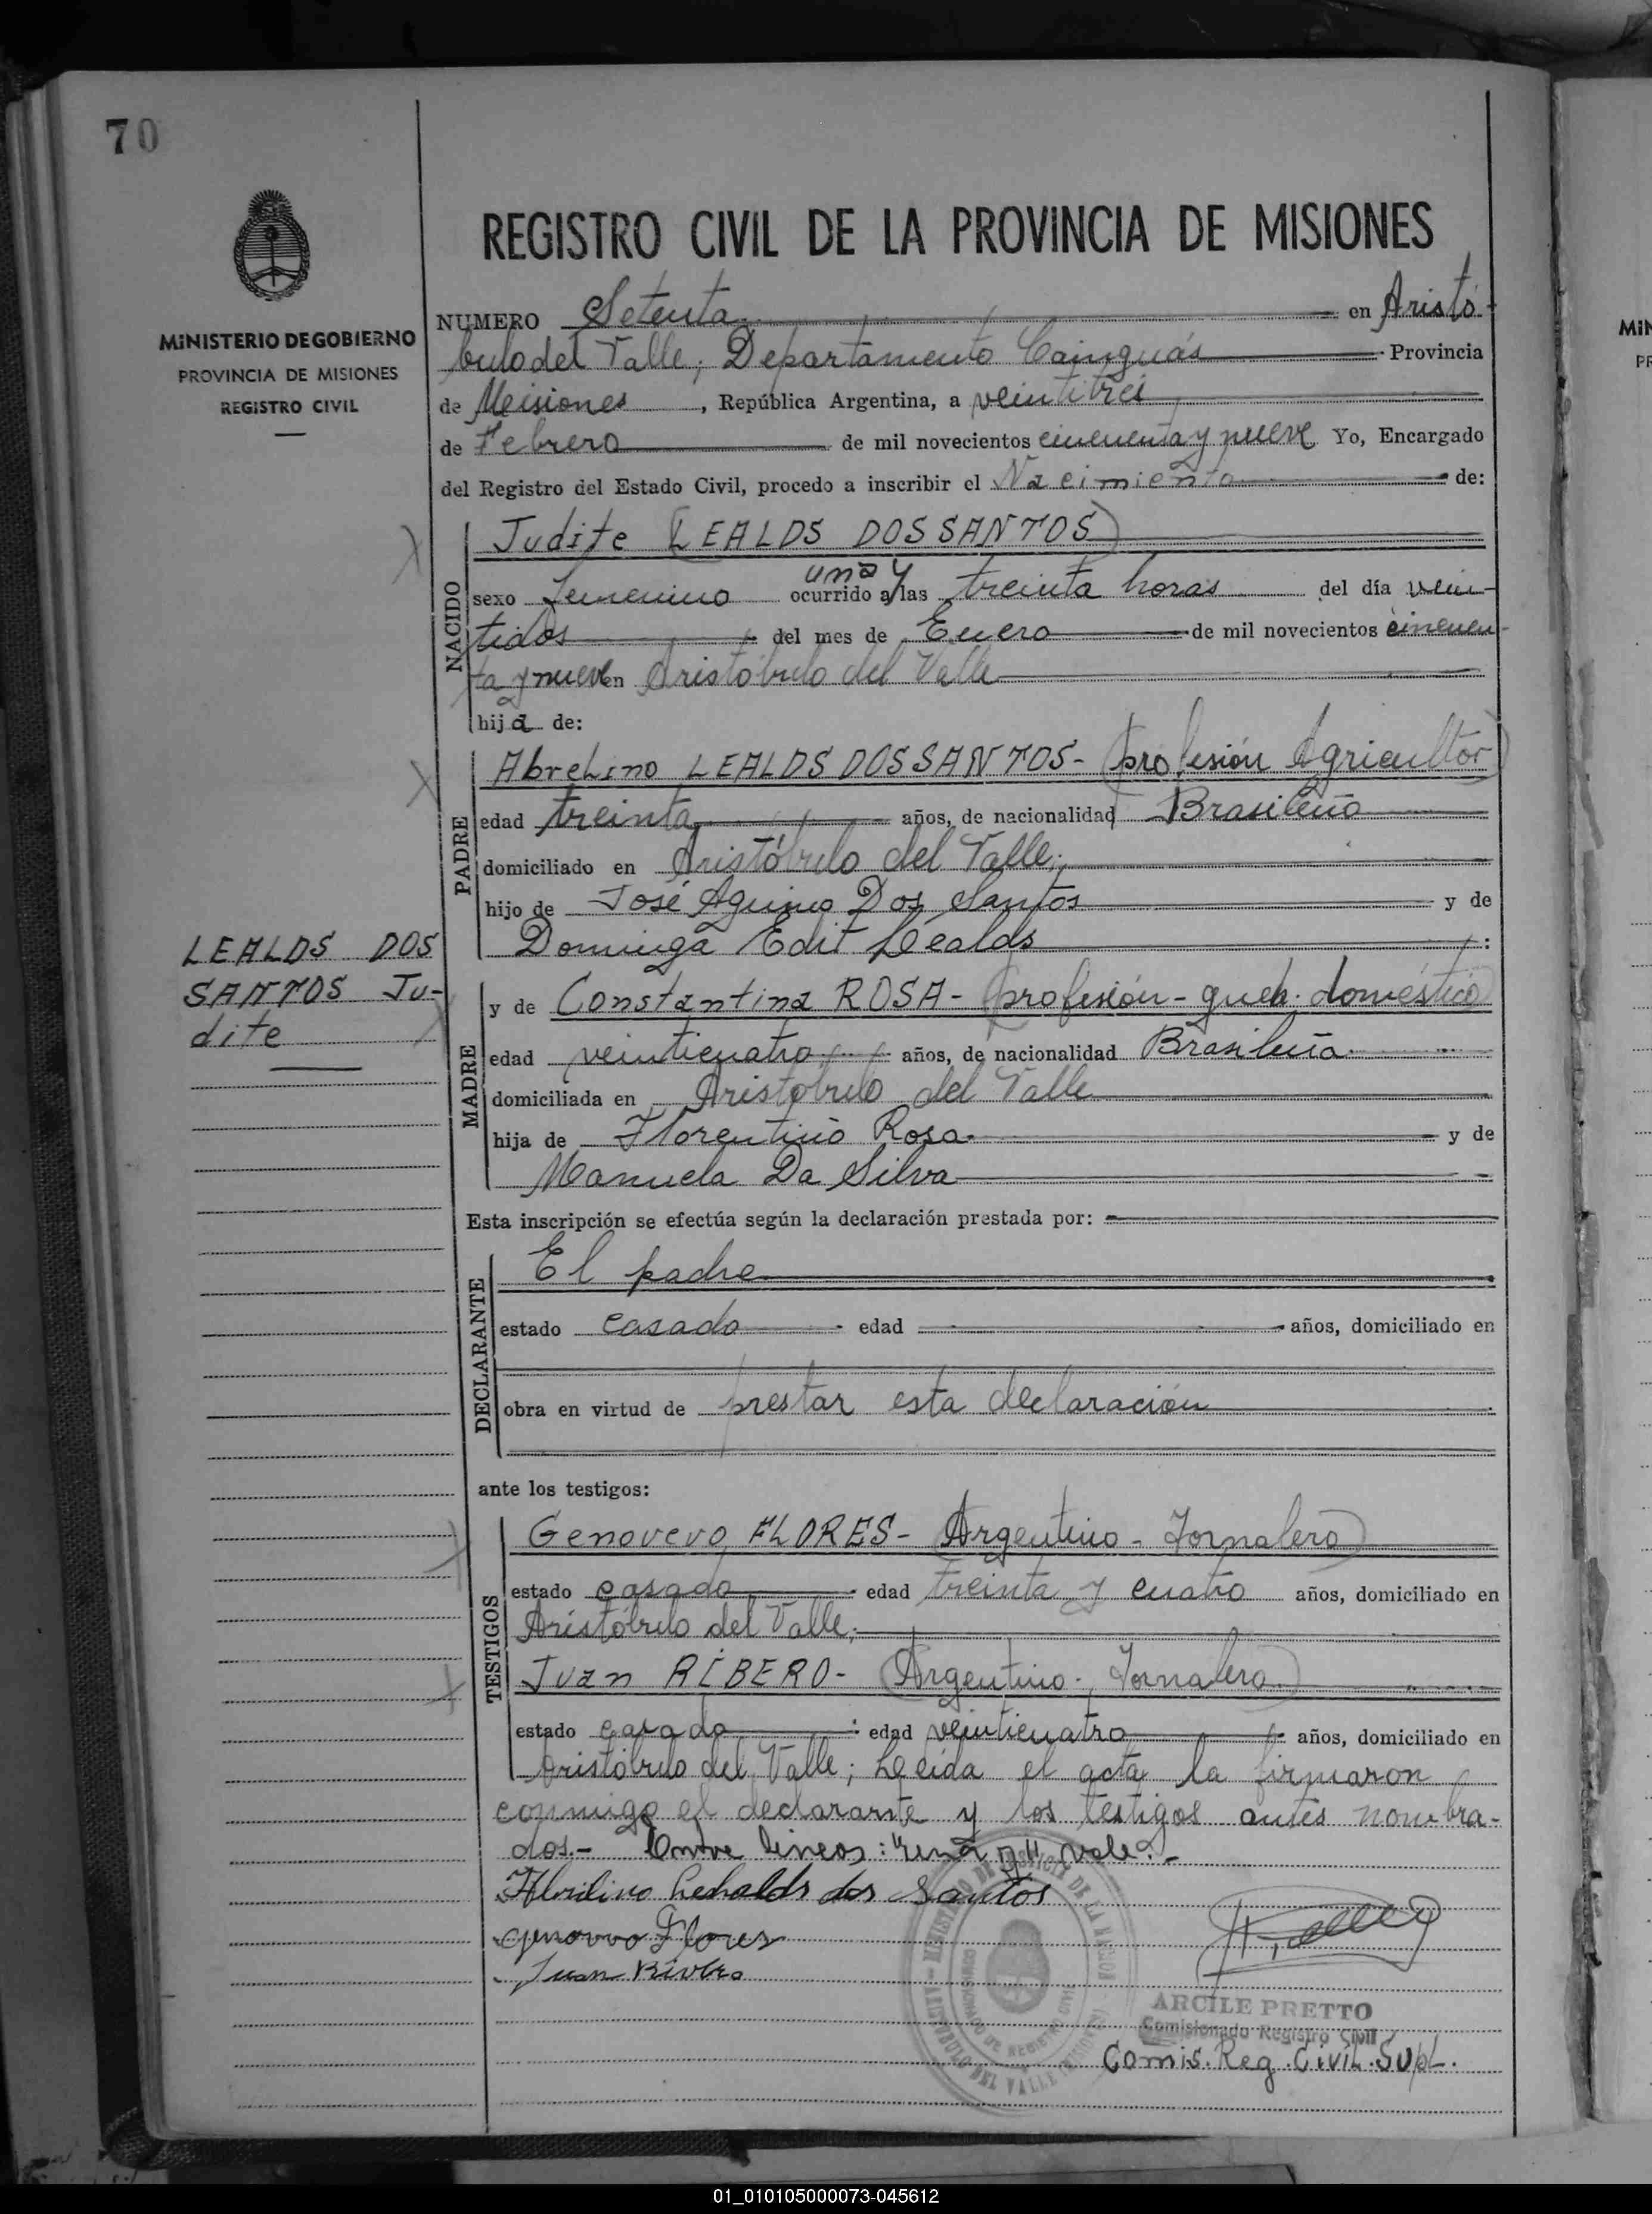 70
MINISTERIO DE GOBIERNO
PROVINCIA DE MISIONES
REGISTRO CIVIL
REGISTRO CIVIL DE LA PROVINCIA DE MISIONES
NUMERO Setenta en Aristó-
bulo del Valle, Departamento Cainguás Provincia
de Misiones, República Argentina, a veintitrés
de Febrero de mil novecientos cincuenta y nueve Yo, Encargado
del Registro del Estado Civil, procedo a inscribir el Nacimiento de:
NACIDO
Judite (LEALDS DOS SANTOS)
una y
sexo femenino ocurrido a las treinta horas del día vein-
tidos del mes de Enero de mil novecientos cincuen-
ta y nueve en Aristóbulo del Valle
hija de:
PADRE
Abrelino LEALDS DOS SANTOS- (profesión Agricultor)
edad treinta años, de nacionalidad Brasileño
domiciliado en Aristóbulo del Valle;
hijo de José Aquino Dos Santos y de
Dominga Edit Lealds :
LEALDS DOS
SANTOS Ju-
dite
MADRE
y de Constantina ROSA- (profesión - queh. doméstico)
edad veinticuatro años, de nacionalidad Brasileña
domiciliada en Aristóbulo del Valle
hija de Florentino Rosa y de
Manuela Da Silva
Esta inscripción se efectúa según la declaración prestada por:
DECLARANTE
El padre
estado casado edad años, domiciliado en
obra en virtud de prestar esta declaración
ante los testigos:
TESTIGOS
Genovevo FLORES- (Argentino - Jornalero)
estado casado edad treinta y cuatro años, domiciliado en
Aristóbulo del Valle;
Juan RIBERO- (Argentino - Jornalero)
estado casado edad veinticuatro años, domiciliado en
Aristóbulo del Valle; Leída el acta la firmaron
conmigo el declarante y los testigos antes nombra-
dos.- Entre lineas: "una y" vale.-
Abrilino Lehalds dos Santos
Genovvo Flores
Juan Rivero
ARCILE PRETTO
Comisionado Registro Civil
Comis. Reg. Civil. Supl.
01_010105000073-045612